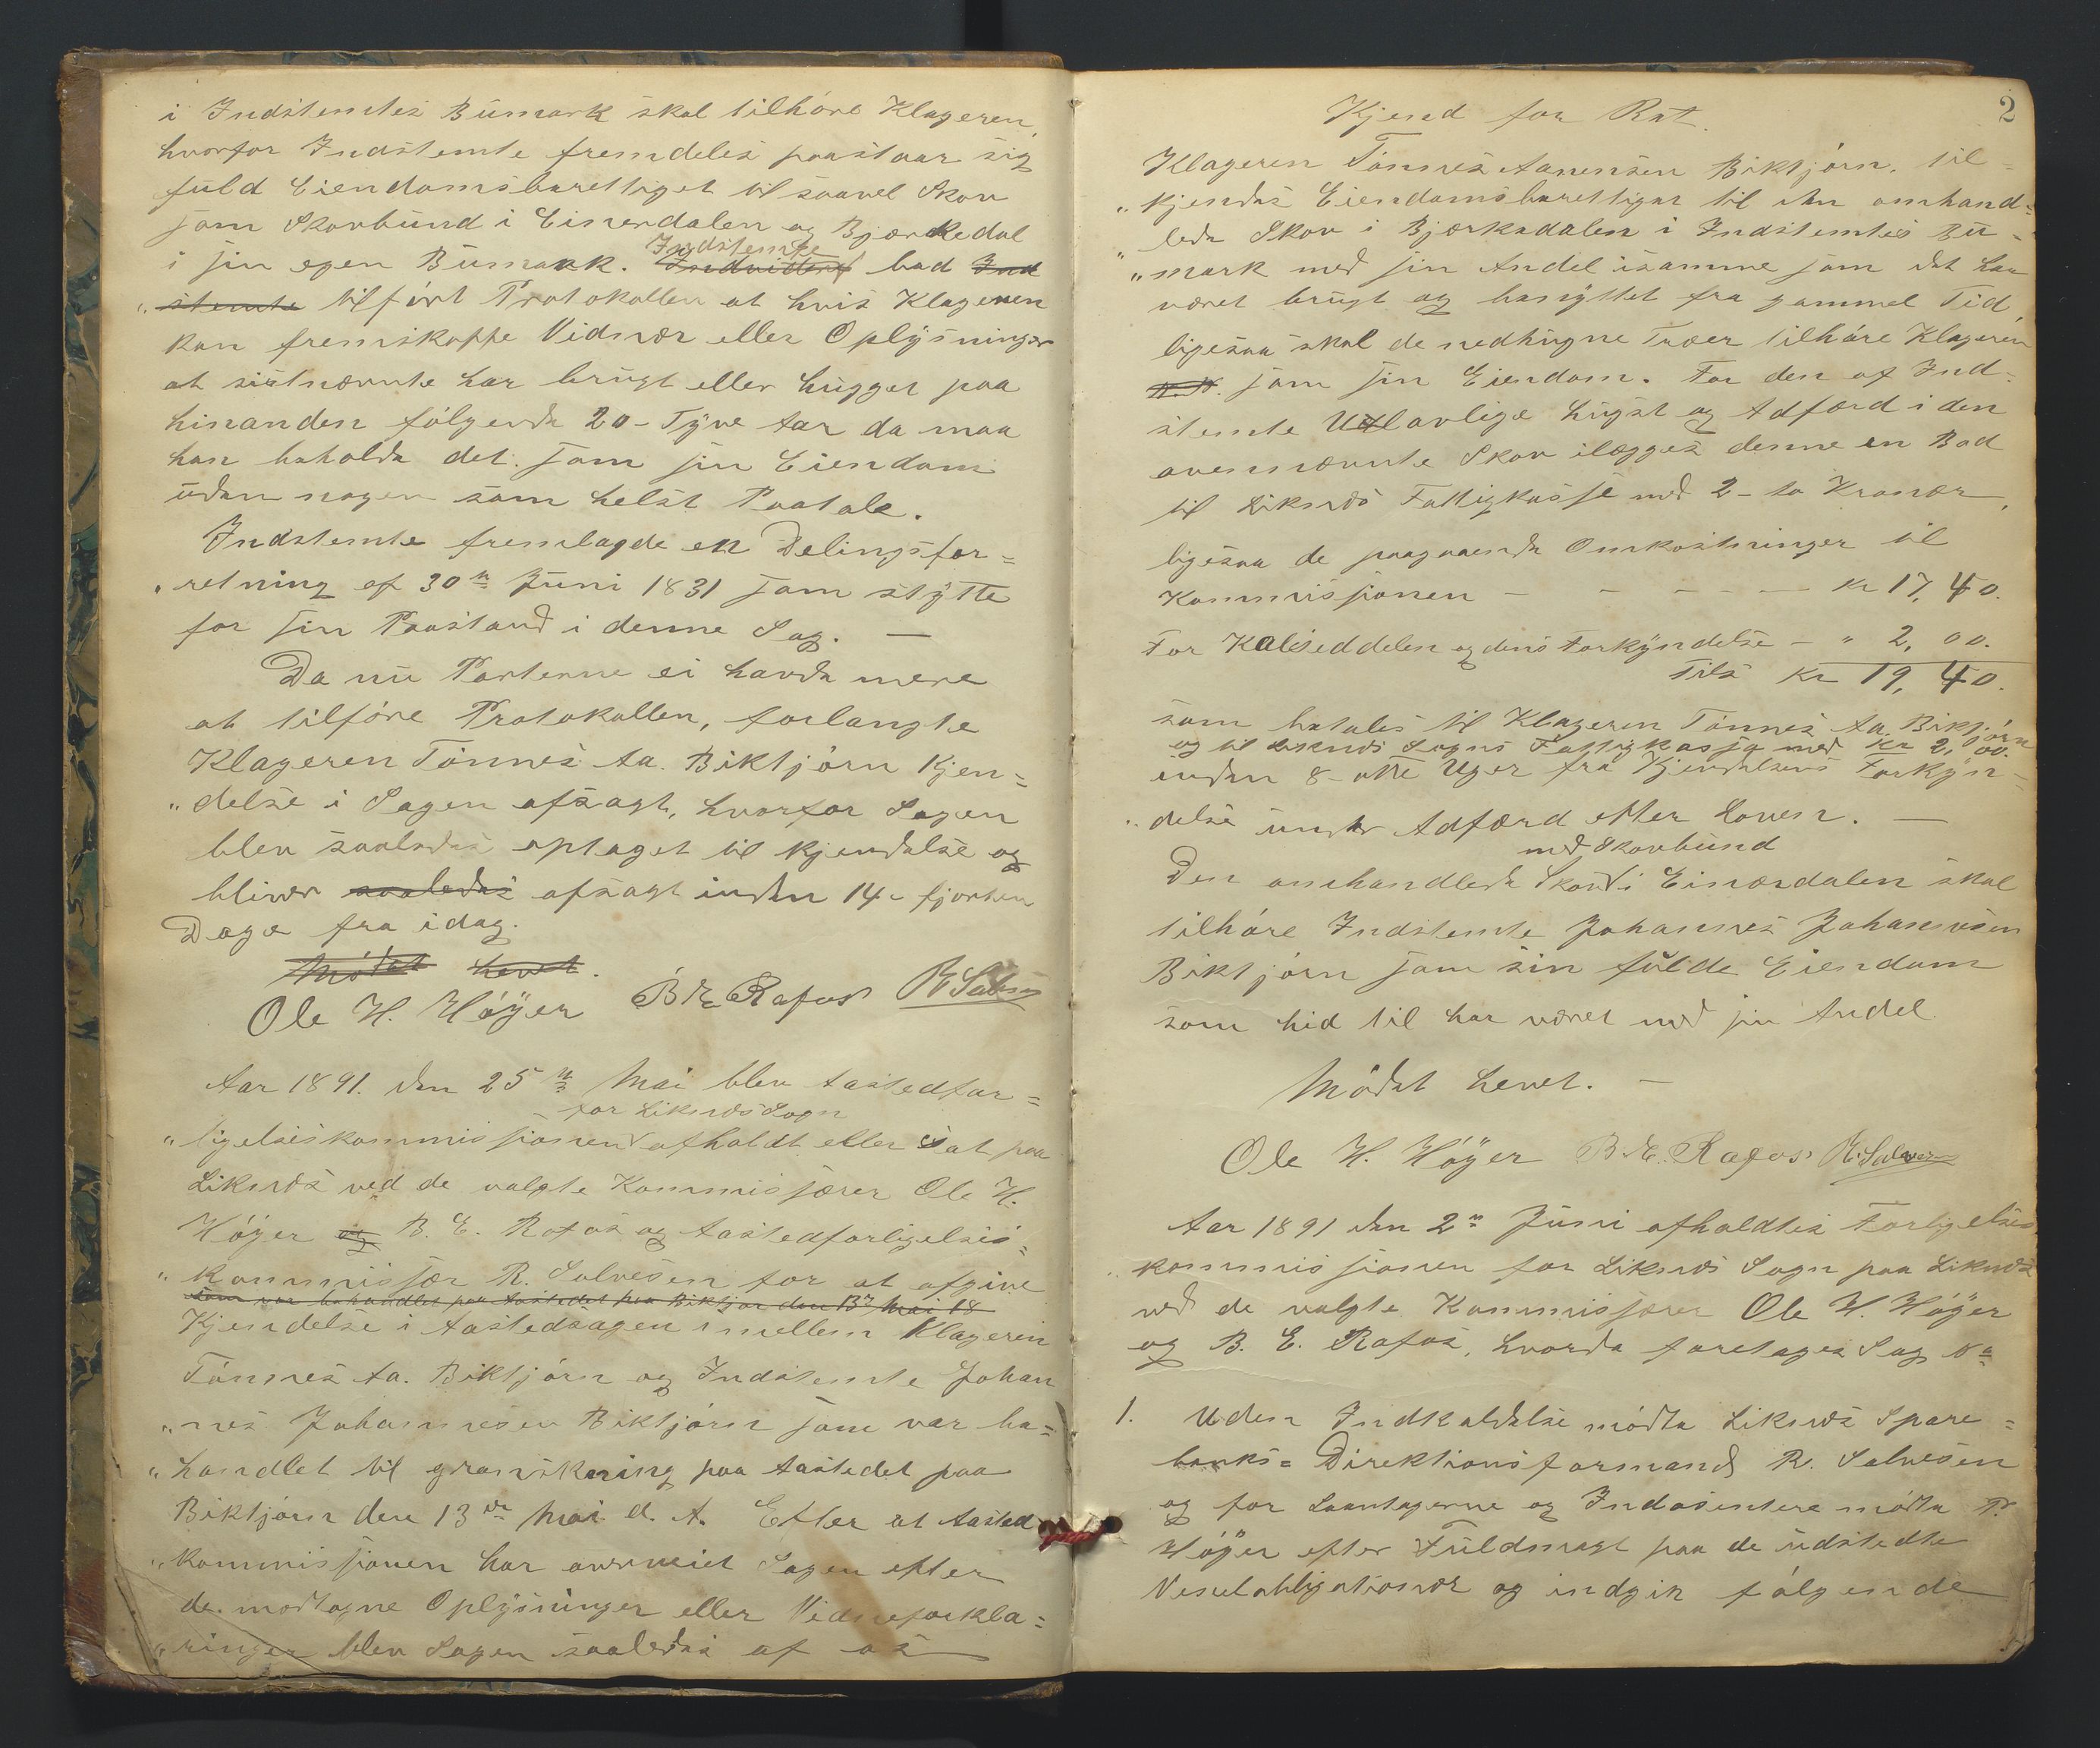 i Indstemtes Bümark skal tilhöre Klageren,
hvorfor Indstemte fremdeles paastaar sig
füld Eiendomsberettiget til saavel Skov
som Skovbünd i Einerdalen og Bjærkedal
Indstemte
i sin egen Bümark. Indvidere bad Ind
„stemte tilfört Protokollen at hvis Klageren
kan fremskaffe Vidner eller Oplÿsninger
at sistnævnte har brügt eller hügget paa
hinanden fölgende 20 - Tÿve Aar da maa
han beholde det som sin Eiendom
üden nogen som helst Paatale.
Indstemte fremlagde en Delingsfor=
„retning af 30te Jüni 1831 som stÿtte
for sin Paastand i denne Sag. —
Da nü Parterne ei havde mere
at tilföre Protokollen, forlangte
Klageren Tönnes Aa. Biktjörn Kjen=
„delse i Sagen afsagt, hvorfor Sagen
blev saaledes optaget til kjendelse og
bliver saaledes afsagt inden 14 - fjorten
Dage fra idag.
Mödet hevet.
Ole H. Höÿer B. E. Rafos R Salvesen
Aar 1891. den 25te Mai blev Aastedfor=
for Liknes Sogn
„ligelseskommissionen afholdt eller sat paa
Liknes ved de valgte Kommissærer Ole H.
Höÿer og B. E. Rafos og Aastedforligelses=
„kommissær R. Salvesen for at afgive
som var behandlet paa Aastedet paa Biktjör den 13de Mai 18
Kjendelse i Aastedsagen imellem Klageren
Tönnes Aa. Biktjörn og Indstemte Johan
„nes Johannesen Biktjörn som var be=
„handlet til granskning paa Aastedet paa
Biktjörn den 13de Mai d. A. Efter at Aasted
„kommissionen har overveiet Sagen efter
de modtagne Oplÿsninger eller Vidneforkla=
„ringer blev Sagen saaledes af os
2
Kjend for Ret.
Klageren Tönnes Aanensen Biktjörn, til=
„kjendes Eiendomsberettiget til den omhand=
„lede Skov i Bjærkedalen i Indstemtes Bü=
„mark med sin Andel isamme som det har
været brügt og benÿttet fra gammel Tid,
ligesaa skal de nedhügne Træer tilhöre Klageren
som sin Eiendom. For den af Ind=
stemte Ulovlige hügst og Adfærd i den
ovennævnte Skov ilægges denne en Bod
til Liknes Fattigkasse med 2 - to Kroner,
ligesaa de paagaaende Omkostninger til
Kommissionen — — — — — kr 17,40.
For Kaldseddelen og dens Forkÿndelse — „ 2,00.
Tils kr 19,40.
som betales til Klageren Tönnes Aa. Biktjörn
og til Liknes Sogns Fattigkasse med Kr 2,00.
inden 8 - otte Uger fra Kjendelsens Forkÿn=
„delse ünder Adfærd efter Loven. —
med Skovbünd
Den omhandlede Skov i Einerdalen skal
tilhöre Indstemte Johannes Johannesen
Biktjörn som sin fülde Eiendom
som hid til har været med sin Andel.
Mödet hevet. —
Ole H. Höÿer B. E. Rafos R. Salvesen
Aar 1891 den 2den Jüni afholdtes Forligelses
kommissionen for Liknes Sogn paa Liknes
ved de valgte Kommissærer Ole H. Höÿer
og B. E. Rafos, hvorda foretages Sag No
1. Uden Indkaldelse mödte Liknes Spare=
banks= Direktionsformand R. Salvesen
og for Laantagerne og Indosentere mödte P.
Höÿer efter Füldmagt paa de üdstedte
Vexelobligationer og indgik fölgende